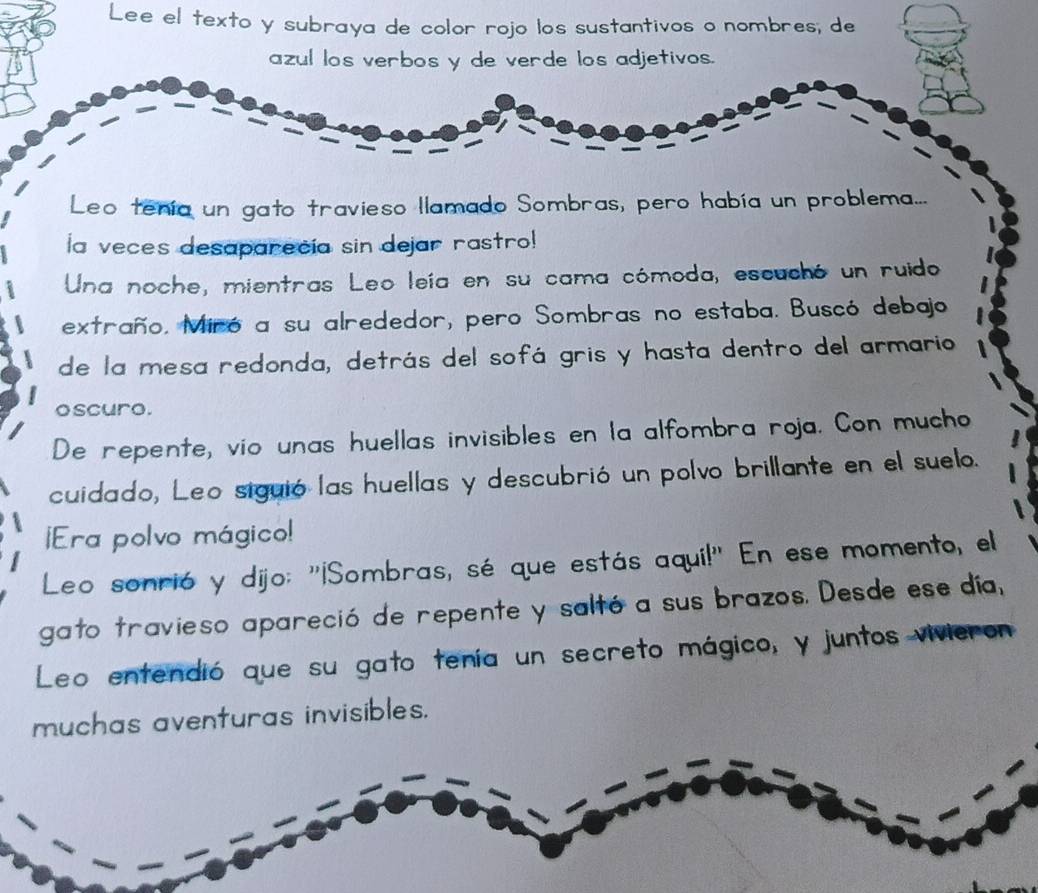 Lee el texto y subraya de color rojo los sustantivos o nombres; de
azul los verbos y de verde los adjetivos.
Leo tenía un gato travieso llamado Sombras, pero había un problema...
¡a veces desaparecía sin dejar rastro!
Una noche, mientras Leo leía en su cama cómoda, escuchó un ruido
extraño. Miró a su alrededor, pero Sombras no estaba. Buscó debajo
de la mesa redonda, detrás del sofá gris y hasta dentro del armario
oscuro.
De repente, vio unas huellas invisibles en la alfombra roja. Con mucho
cuidado, Leo siguió las huellas y descubrió un polvo brillante en el suelo.
¡Era polvo mágico!
Leo sonrió y dijo: "¡Sombras, sé que estás aquí!" En ese momento, el
gato travieso apareció de repente y saltó a sus brazos. Desde ese día,
Leo entendió que su gato tenía un secreto mágico, y juntos vivieron
muchas aventuras invisibles.